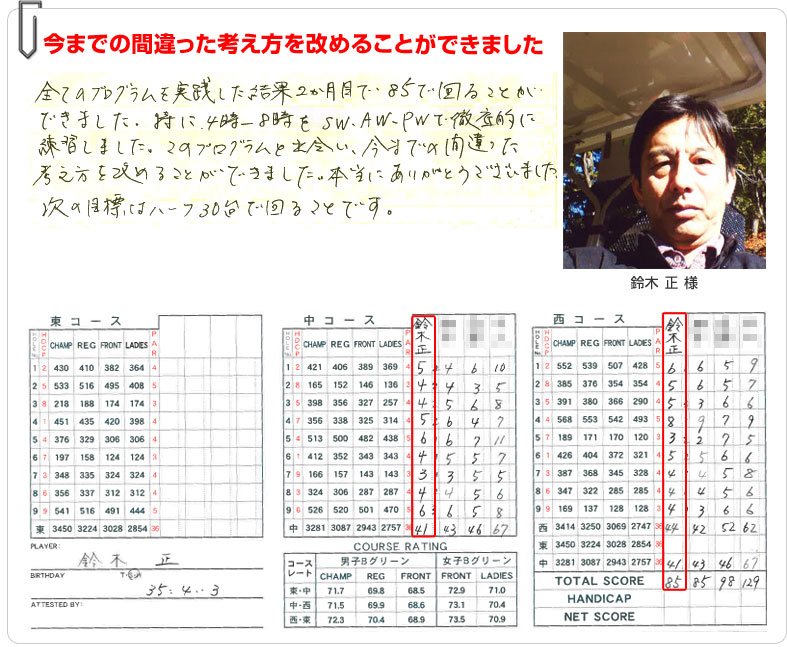 今までの間違った考え方を改めることができました
全てのプログラムを実践した結果2か月目で、85で回ることが
できました。特に、4時―8時を SW、AW、PWで徹底的に
練習しました。このプログラムと出会い、今までの間違った
考え方を改めることができました。本当にありがとうございました
次の目標はハーフ30台で回ることです。
鈴木 正 様
東コース
HOLE No. HDCP CHAMP REG FRONT LADIES PAR
1 2 430 410 382 364 4
2 5 533 516 495 408 5
3 8 218 188 174 174 3
4 1 451 435 420 398 4
5 4 376 329 306 306 4
6 7 197 158 124 124 3
7 3 348 335 324 324 4
8 6 356 337 312 312 4
9 9 541 516 491 444 5
東 3450 3224 3028 2854 36
PLAYER: 鈴木 正
BIRTHDAY T・S・H 35・4・3
ATTESTED BY:
中コース
HOLE No. HDCP CHAMP REG FRONT LADIES PAR 鈴木正
1 2 421 406 389 369 4 5 4 6 10
2 8 165 152 146 136 3 4 4 3 5
3 5 398 356 327 257 4 4 5 6 8
4 7 356 338 325 314 4 5 6 4 7
5 4 513 500 482 438 5 6 6 7 11
6 1 412 352 343 343 4 4 5 5 7
7 9 166 157 143 143 3 3 3 5 5
8 3 324 306 287 287 4 4 4 5 6
9 6 526 520 501 470 5 6 6 5 8
中 3281 3087 2943 2757 36 41 43 46 67
COURSE RATING
コースレート 男子Bグリーン 女子Bグリーン
CHAMP REG FRONT FRONT LADIES
東・中 71.7 69.8 68.5 72.9 71.0
中・西 71.5 69.9 68.6 73.1 70.4
西・東 72.3 70.4 68.9 73.5 70.9
西コース
HOLE No. HDCP CHAMP REG FRONT LADIES PAR 鈴木正
1 2 552 539 507 428 5 6 6 5 9
2 8 385 376 354 354 4 5 6 5 7
3 5 391 380 366 290 4 5 3 6 6
4 4 568 553 542 493 5 8 9 7 9
5 7 189 171 170 120 3 3 2 7 5
6 1 426 404 372 321 4 5 5 6 6
7 3 387 368 345 328 4 4 4 5 8
8 6 347 322 285 285 4 4 4 5 6
9 9 169 137 128 128 3 4 3 6 6
西 3414 3250 3069 2747 36 44 42 52 62
東 3450 3224 3028 2854 36
中 3281 3087 2943 2757 36 41 43 46 67
TOTAL SCORE 85 85 98 129
HANDICAP
NET SCORE